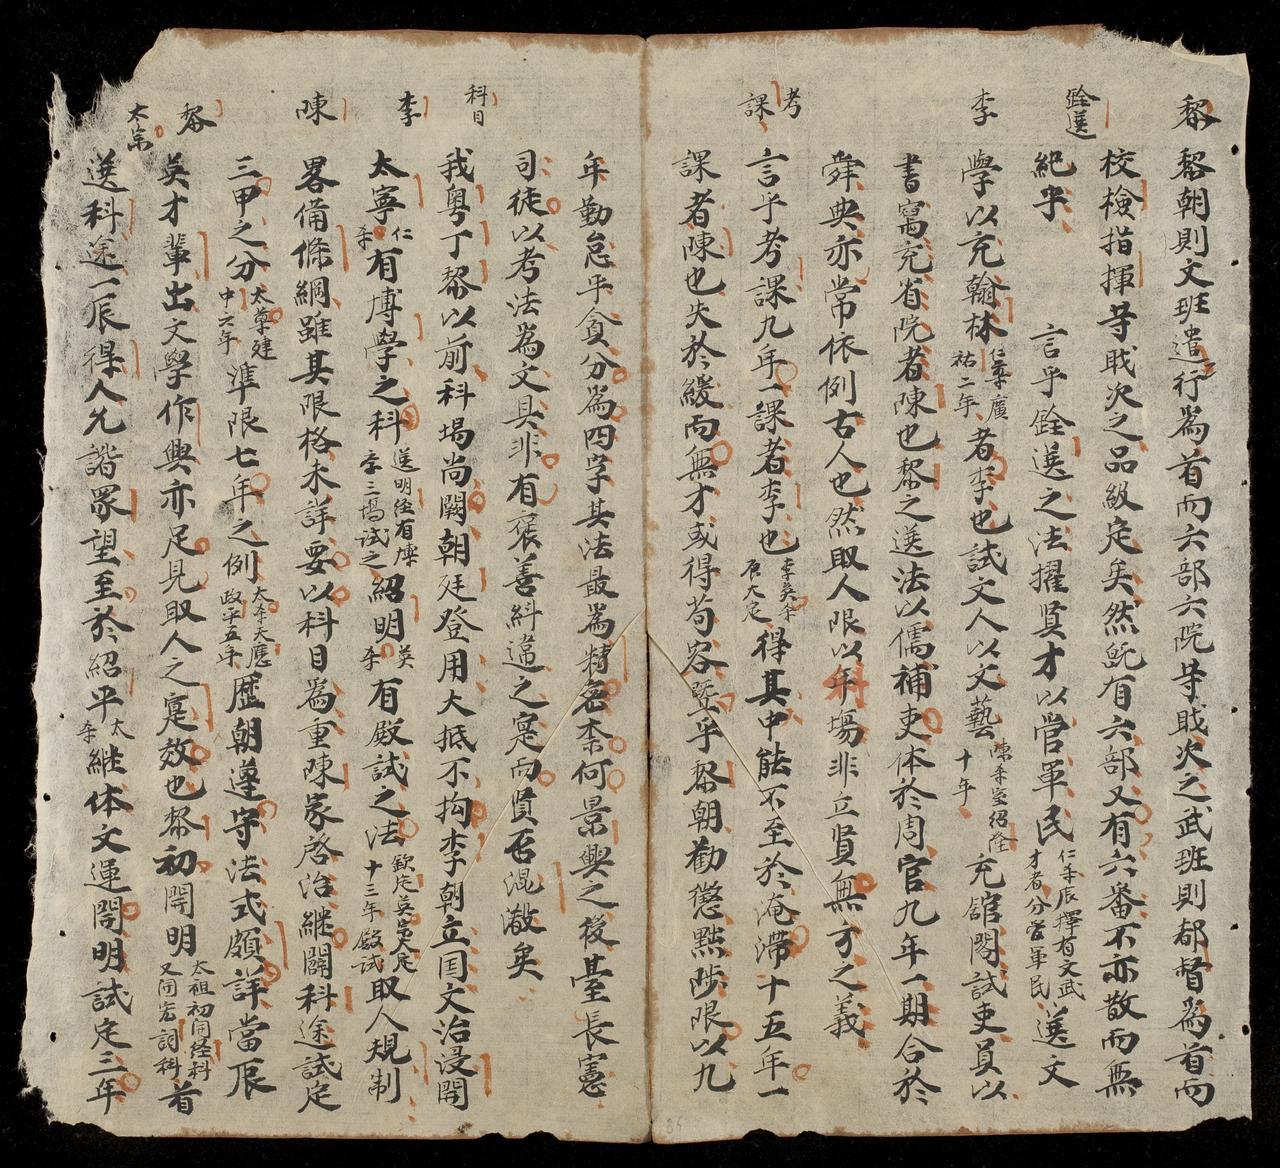 黎
黎朝則文班遣行為首而六部六院等戝次之武班則都督為首而
校檢指揮等戝次之品級定矣然既有六部又有六番不亦散而無
紀乎
銓选
言乎銓选之法擢賢才以管軍民仁宗辰擇有文武才者分管軍民选文
李
學以充翰林仁宗廣祐二年者李也試文人以文藝陳宗紹隆十年充舘閣試吏員以
書寫充省院者陳也黎之选法以儒補吏体於周官九年一期合於
舜典亦常依例古人也然取人限以年塲非立賢無方之義
考課
言乎考課九年一課者李也李英宗辰大定得其中能不至於淹滯十五年一
課者陳也失於緩而無才或得苟容暨乎黎朝勸懲黜陟限以九
年勤怠平貪分為四字其法最為精密柰何景興之後臺長憲
司徒以考法為文具非有褒善糾違之寔而賢否混淆矣
科目
我粤丁黎以前科塲尚闕朝廷登用大抵不拘李朝立国文治浸開
李
太寧仁宗有博學之科选明經有李三塲試之紹明英宗有殿試之法欽定英宗大定十三年殿試取人規制
畧備條綱雖其限格未詳要以科目為重陳家啓治継闢科途試定
陳
三甲之分太尊建中六年準限七年之例太宗天應政平五年歷朝遵守法式頗詳當辰
英才輩出文學作興亦足見取人之寔效也黎初開明太祖初開經科又開宏詞科首
黎
太宗
选科途一辰得人允諧眾望至於紹平太宗継体文運開明試定三年